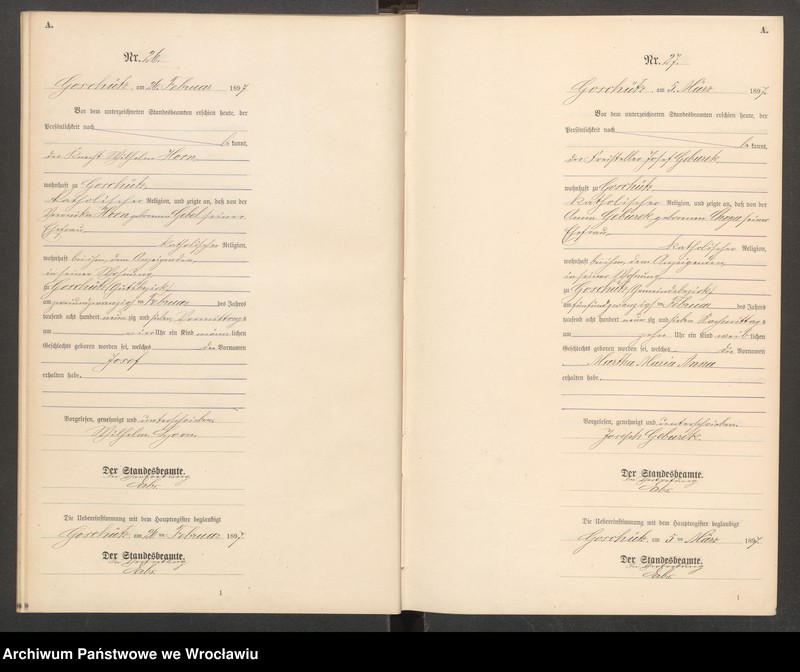 A.
Nr. 26.
Goschütz, am 26. Februar 1897
Vor dem unterzeichneten Standesbeamten erschien heute, der
Persönlichkeit nach
be kannt,
der Knecht Wilhelm Horn
wohnhaft zu Goschütz
katholischer Religion, und zeigte an, daß von der
Veronika Horn geborenen seiner
Ehefrau
katholischer Religion,
wohnhaft bei ihm, dem Anzeigenden,
in seiner Wohnung
zu Goschütz Gutsbezirk
am zweiundzwanzigsten Februar des Jahres
tausend acht hundert neunzig und sieben Vormittags
um Uhr ein Kind männlichen
Geschlechts geboren worden sei, welches den Vornamen
Josef
erhalten habe.
Vorgelesen, genehmigt und unterschrieben.
Wilhelm Horn
Der Standesbeamte.
In Vertretung
Die Uebereinstimmung mit dem Hauptregister beglaubigt
Goschütz, am 26ten Februar 1897.
Der Standesbeamte.
In Vertretung
1
A.
Nr. 27.
Goschütz, am 5. März 1897.
Vor dem unterzeichneten Standesbeamten erschien heute, der
Persönlichkeit nach
be kannt,
der Freisteller Josef Geburek
wohnhaft zu Goschütz
katholischer Religion, und zeigte an, daß von der
Anna Geburek geborenen seiner
Ehefrau
katholischer Religion,
wohnhaft bei ihm, dem Anzeigenden
in seiner Wohnung
zu Goschütz Gemeindebezirk
am fünfundzwanzigsten Februar des Jahres
tausend acht hundert neunzig und sieben Nachmittags
um zehn Uhr ein Kind weiblichen
Geschlechts geboren worden sei, welches die Vornamen
Martha Maria Anna
erhalten habe.
Vorgelesen, genehmigt und unterschrieben.
Joseph Geburek
Der Standesbeamte.
In Vertretung
Die Uebereinstimmung mit dem Hauptregister beglaubigt
Goschütz, am 5ten März 1897.
Der Standesbeamte.
In Vertretung
1
Archiwum Państwowe we Wrocławiu